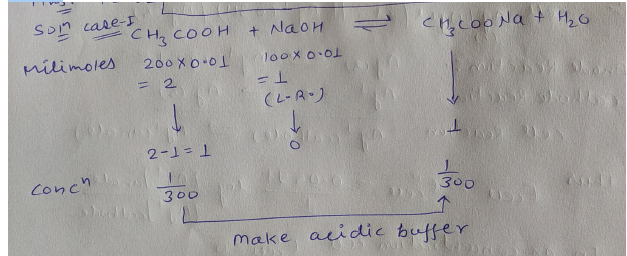 Soln case-I CH3COOH + NaOH ⇌ CH3COONa + H2O
Milimoles 200×0.01 100×0.01
= 2 = 1
(L-R.)
↓ ↓ ↓
2-1=1 0 1
concn 1/300 1/300
make acidic buffer